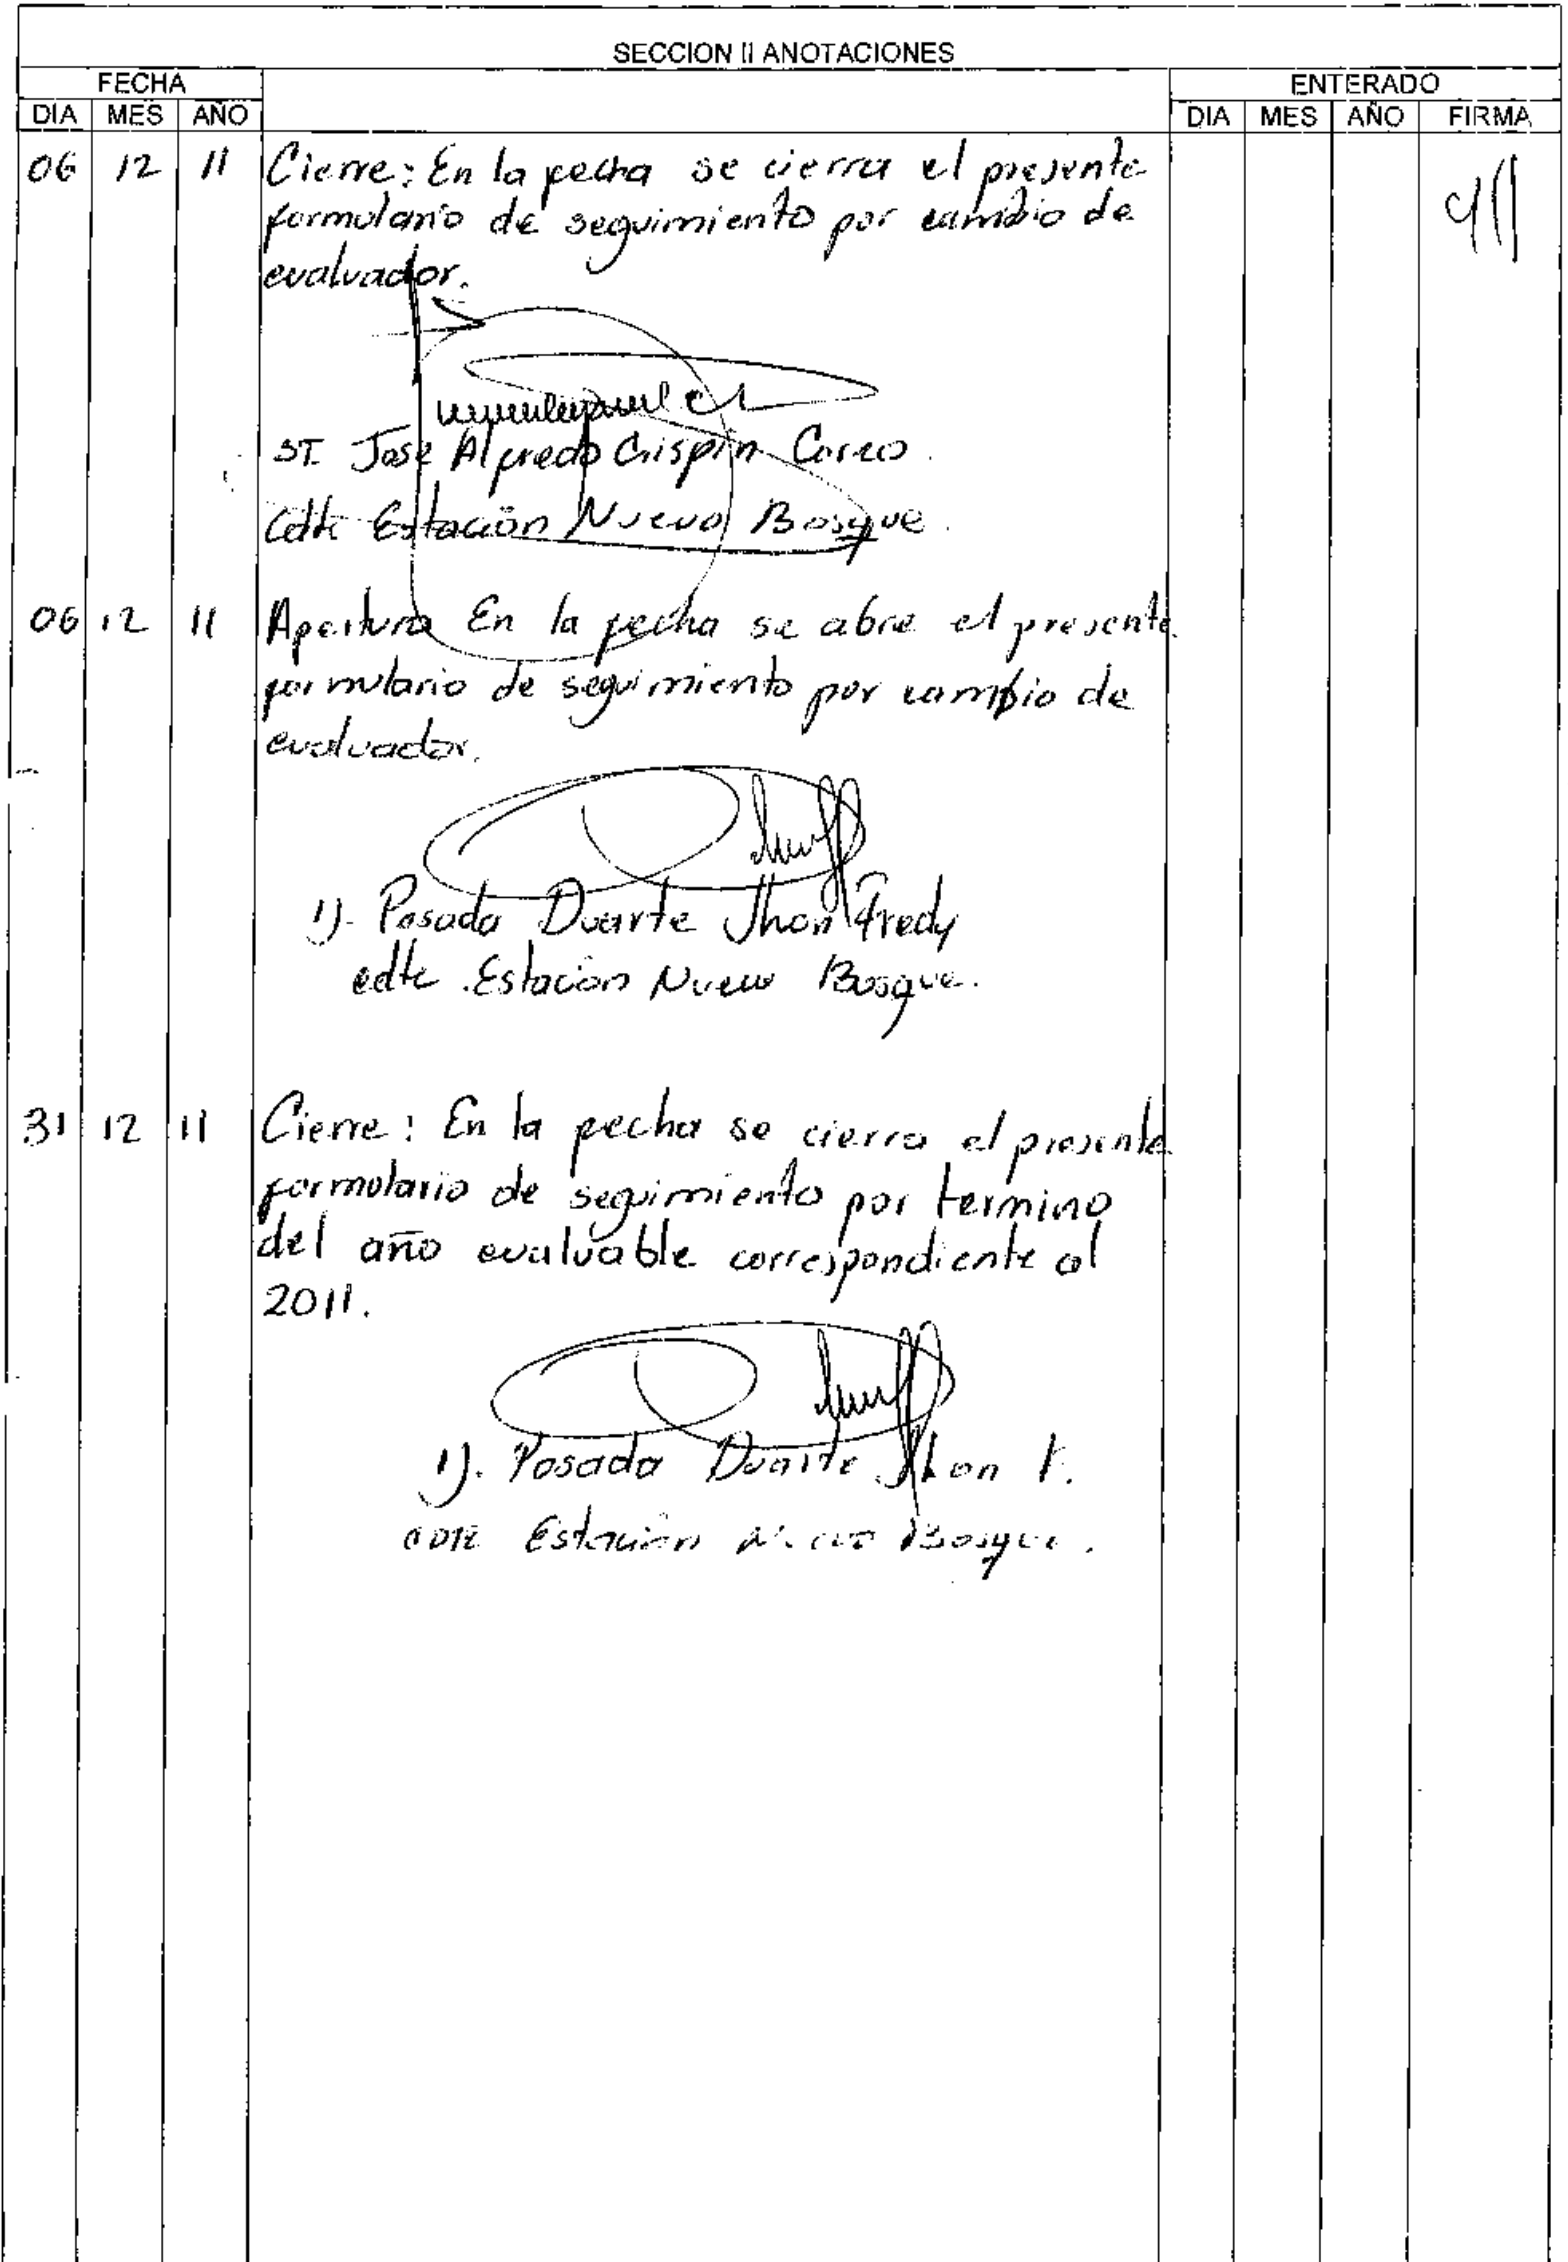 SECCION II ANOTACIONES
FECHA
ENTERADO
DIA MES AÑO
DIA MES AÑO FIRMA
06 12 11 Cierre: En la fecha se cierra el presente
formulario de seguimiento por cambio de
evaluador.
ST. Jose Alfredo Crispin
Cdte Estación Nuevo Bosque.
06 12 11 Apertura En la fecha se abre el presente
formulario de seguimiento por cambio de
evaluador.
Posada Duarte Jhon Fredy
cdte. Estación Nuevo Bosque.
31 12 11 Cierre: En la fecha se cierra el presente
formulario de seguimiento por termino
del año evaluable correspondiente al
2011.
Posada Duarte Jhon F.
CDTE Estación Nuevo Bosque.